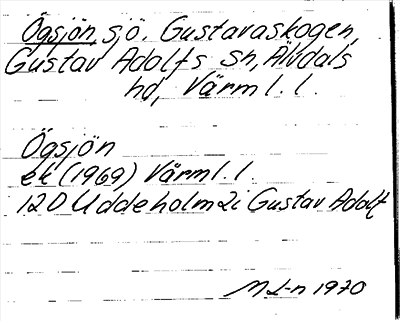 Ögsjön, sjö. Gustavaskogen,
Gustav Adolfs sn, Älvdals
hd, Värml. l.
Ögsjön
ek (1969) Värml. l.
12D Uddeholm 2i Gustav Adolf
ML-n 1970